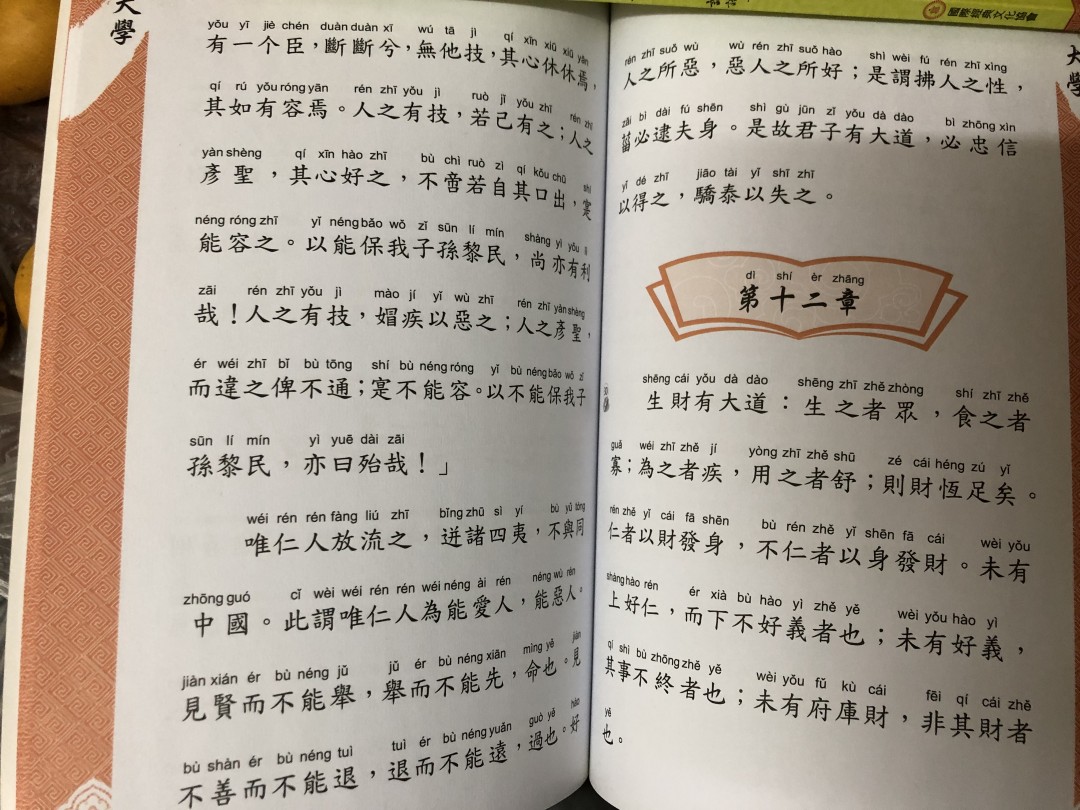 大學
yǒu yī jiè chén duàn duàn xī wú tā jì qí xīn xiū xiū yān
有一个臣，斷斷兮，無他技，其心休休焉，
qí rú yǒu róng yān rén zhī yǒu jì ruò jǐ yǒu zhī rén zhī
其如有容焉。人之有技，若己有之；人之
yàn shèng qí xīn hào zhī bù chì ruò zì qí kǒu chū shí
彥聖，其心好之，不啻若自其口出，寔
néng róng zhī yǐ néng bǎo wǒ zǐ sūn lí mín shàng yì yǒu lì
能容之。以能保我子孫黎民，尚亦有利
zāi rén zhī yǒu jì mào jí yǐ wù zhī rén zhī yàn shèng
哉！人之有技，媢疾以惡之；人之彥聖，
ér wéi zhī bǐ bù tōng shí bù néng róng yǐ bù néng bǎo wǒ zǐ
而違之俾不通；寔不能容。以不能保我子
sūn lí mín yì yuē dài zāi
孫黎民，亦曰殆哉！」
wéi rén rén fàng liú zhī bǐng zhū sì yí bù yǔ tóng
唯仁人放流之，迸諸四夷，不與同
zhōng guó cǐ wèi wéi rén rén wéi néng ài rén néng wù rén
中國。此謂唯仁人為能愛人，能惡人。
jiàn xián ér bù néng jǔ jǔ ér bù néng xiān mìng yě jiàn
見賢而不能舉，舉而不能先，命也。見
bù shàn ér bù néng tuì tuì ér bù néng yuǎn guò yě hào
不善而不能退，退而不能遠，過也。好
國際經典文化協會
大學
rén zhī suǒ wù wù rén zhī suǒ hào shì wèi fú rén zhī xìng
人之所惡，惡人之所好；是謂拂人之性，
zāi bì dài fú shēn shì gù jūn zǐ yǒu dà dào bì zhōng xìn
菑必逮夫身。是故君子有大道，必忠信
yǐ dé zhī jiāo tài yǐ shī zhī
以得之，驕泰以失之。
dì shí èr zhāng
第十二章
shēng cái yǒu dà dào shēng zhī zhě zhòng shí zhī zhě
生財有大道：生之者眾，食之者
guǎ wéi zhī zhě jí yòng zhī zhě shū zé cái héng zú yǐ
寡；為之者疾，用之者舒；則財恆足矣。
rén zhě yǐ cái fā shēn bù rén zhě yǐ shēn fā cái wèi yǒu
仁者以財發身，不仁者以身發財。未有
shàng hào rén ér xià bù hào yì zhě yě wèi yǒu hào yì
上好仁，而下不好義者也；未有好義，
qí shì bù zhōng zhě yě wèi yǒu fǔ kù cái fēi qí cái zhě
其事不終者也；未有府庫財，非其財者
yě
也。